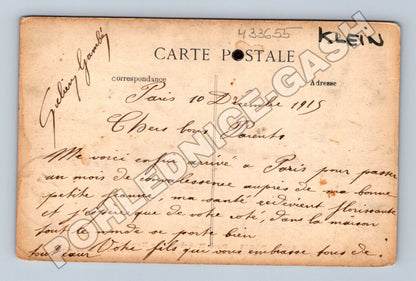 433655
KLEIN
CARTE POSTALE
correspondance
Adresse
Paris 10 Décembre 1915
Chers bons Parents
Me voici enfin arrivé à Paris pour passer
un mois de convalescence auprès de ma bonne
petite, ma santé redevient florissante
et j'espère que de votre coté, dans la maison
tout le monde se porte bien
Votre fils qui vous embrasse tous de
tout cœur
POHLEDNICE-GASH